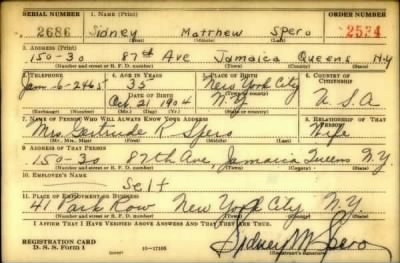 SERIAL NUMBER 1. NAME (Print) ORDER NUMBER
2686 Sidney Matthew Spero 2534
(First) (Middle) (Last)
2. ADDRESS (Print)
150-30 87th Ave Jamaica Queens N.Y
(Number and street or R. F. D. number) (Town) (County) (State)
3. TELEPHONE 4. AGE IN YEARS 5. PLACE OF BIRTH 6. COUNTRY OF CITIZENSHIP
Jam-6-2465 35 New York City
DATE OF BIRTH (Town or county)
Oct 21 1904 N.Y U.S.A
(Exchange) (Number) (Mo.) (Day) (Yr.) (State or country)
7. NAME OF PERSON WHO WILL ALWAYS KNOW YOUR ADDRESS 8. RELATIONSHIP OF THAT PERSON
Mrs. Gertrude R Spero Wife
(Mr., Mrs., Miss) (First) (Middle) (Last)
9. ADDRESS OF THAT PERSON
150-30 87th Ave, Jamaica Queens N.Y.
(Number and street or R. F. D. number) (Town) (County) (State)
10. EMPLOYER'S NAME
Self
11. PLACE OF EMPLOYMENT OR BUSINESS
41 Park Row New York City N.Y.
(Number and street or R. F. D. number) (Town) (County) (State)
I AFFIRM THAT I HAVE VERIFIED ABOVE ANSWERS AND THAT THEY ARE TRUE.
REGISTRATION CARD
D. S. S. Form 1 16—17105 Sidney M Spero